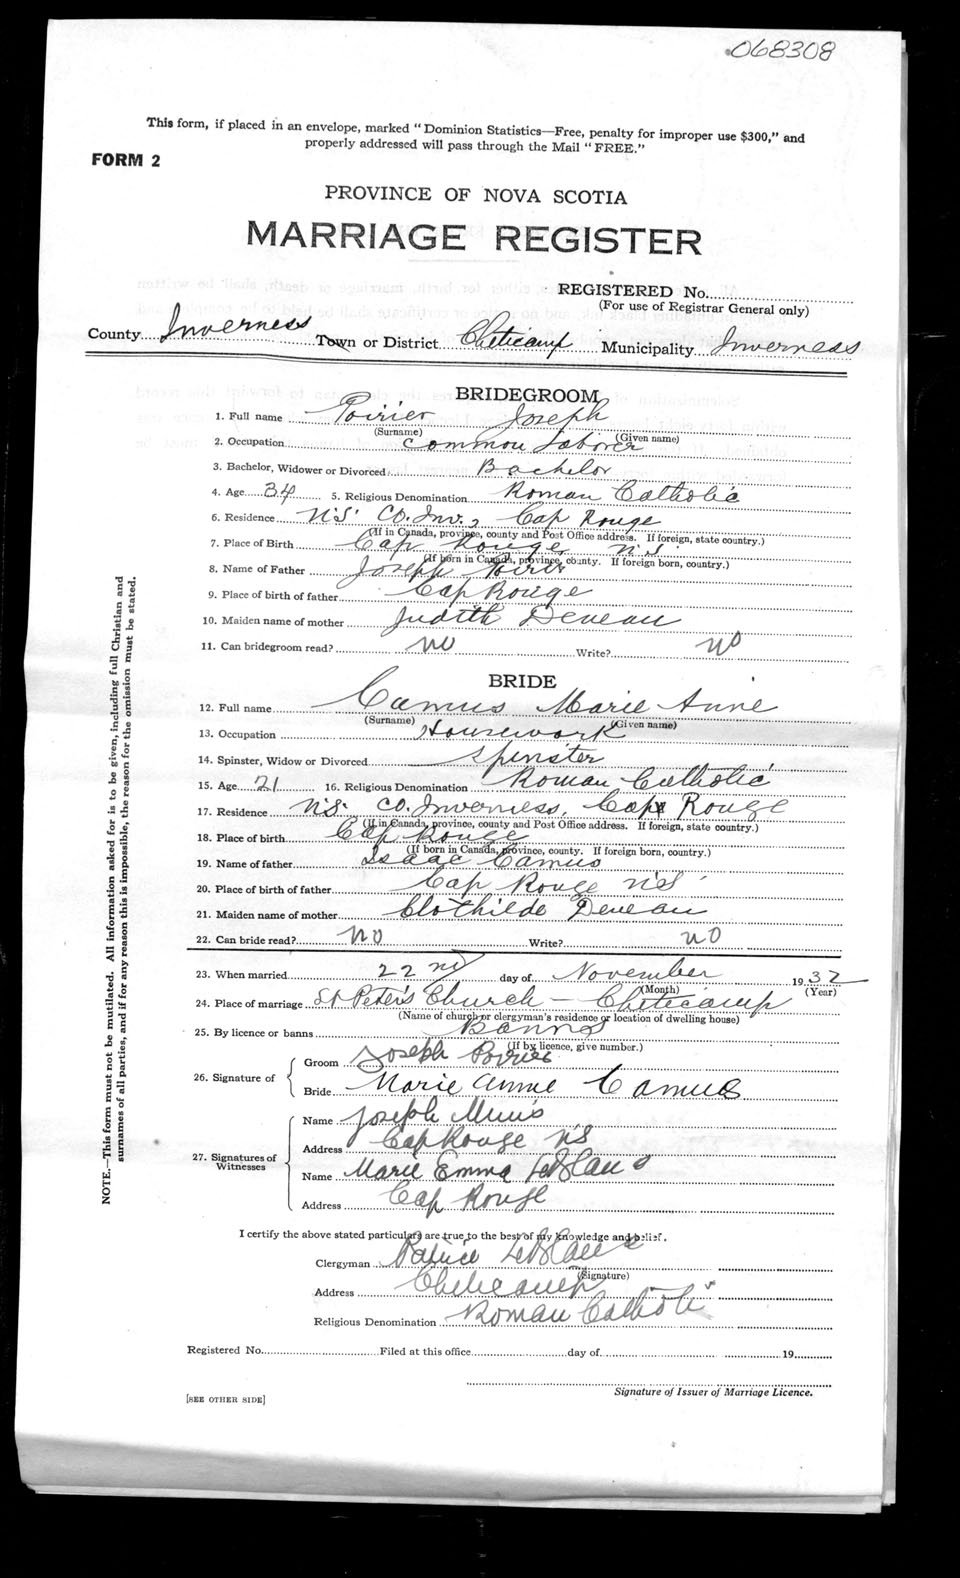 068308
This form, if placed in an envelope, marked "Dominion Statistics—Free, penalty for improper use $300," and
properly addressed will pass through the Mail "FREE."
FORM 2
PROVINCE OF NOVA SCOTIA
MARRIAGE REGISTER
REGISTERED No.
(For use of Registrar General only)
County Inverness Town or District Cheticamp Municipality Inverness
BRIDEGROOM
1. Full name Poirier Joseph
(Surname) (Given name)
2. Occupation Common Laborer
3. Bachelor, Widower or Divorced Bachelor
4. Age 34 5. Religious Denomination Roman Catholic
6. Residence N.S. Co. Inv., Cap Rouge
(If in Canada, province, county and Post Office address. If foreign, state country.)
7. Place of Birth Cap Rouge N.S.
(If born in Canada, province, county. If foreign born, country.)
8. Name of Father Joseph Poirier
9. Place of birth of father Cap Rouge
10. Maiden name of mother Judith Deveau
11. Can bridegroom read? no Write? no
BRIDE
12. Full name Camus Marie Anne
(Surname) (Given name)
13. Occupation Housework
14. Spinster, Widow or Divorced Spinster
15. Age 21 16. Religious Denomination Roman Catholic
17. Residence N.S. Co. Inverness, Cap Rouge
(If in Canada, province, county and Post Office address. If foreign, state country.)
18. Place of birth Cap Rouge
(If born in Canada, province, county. If foreign born, country.)
19. Name of father Isaac Camus
20. Place of birth of father Cap Rouge N.S.
21. Maiden name of mother Clothilde Deveau
22. Can bride read? no Write? no
23. When married 22nd day of November 1932
(Month) (Year)
24. Place of marriage St Peter's Church — Cheticamp
(Name of church or clergyman's residence or location of dwelling house)
25. By licence or banns Banns
(If by licence, give number.)
26. Signature of
Groom Joseph Poirier
Bride Marie Annie Camus
27. Signatures of Witnesses
Name Joseph
Address Cap Rouge N.S
Name Marie Emma LeBlanc
Address Cap Rouge
I certify the above stated particulars are true to the best of my knowledge and belief.
Clergyman LeBlanc
(Signature)
Address Cheticamp
Religious Denomination Roman Catholic
Registered No. Filed at this office day of 19
Signature of Issuer of Marriage Licence.
[SEE OTHER SIDE]
NOTE.—This form must not be mutilated. All information asked for is to be given, including full Christian and
surnames of all parties, and if for any reason this is impossible, the reason for the omission must be stated.